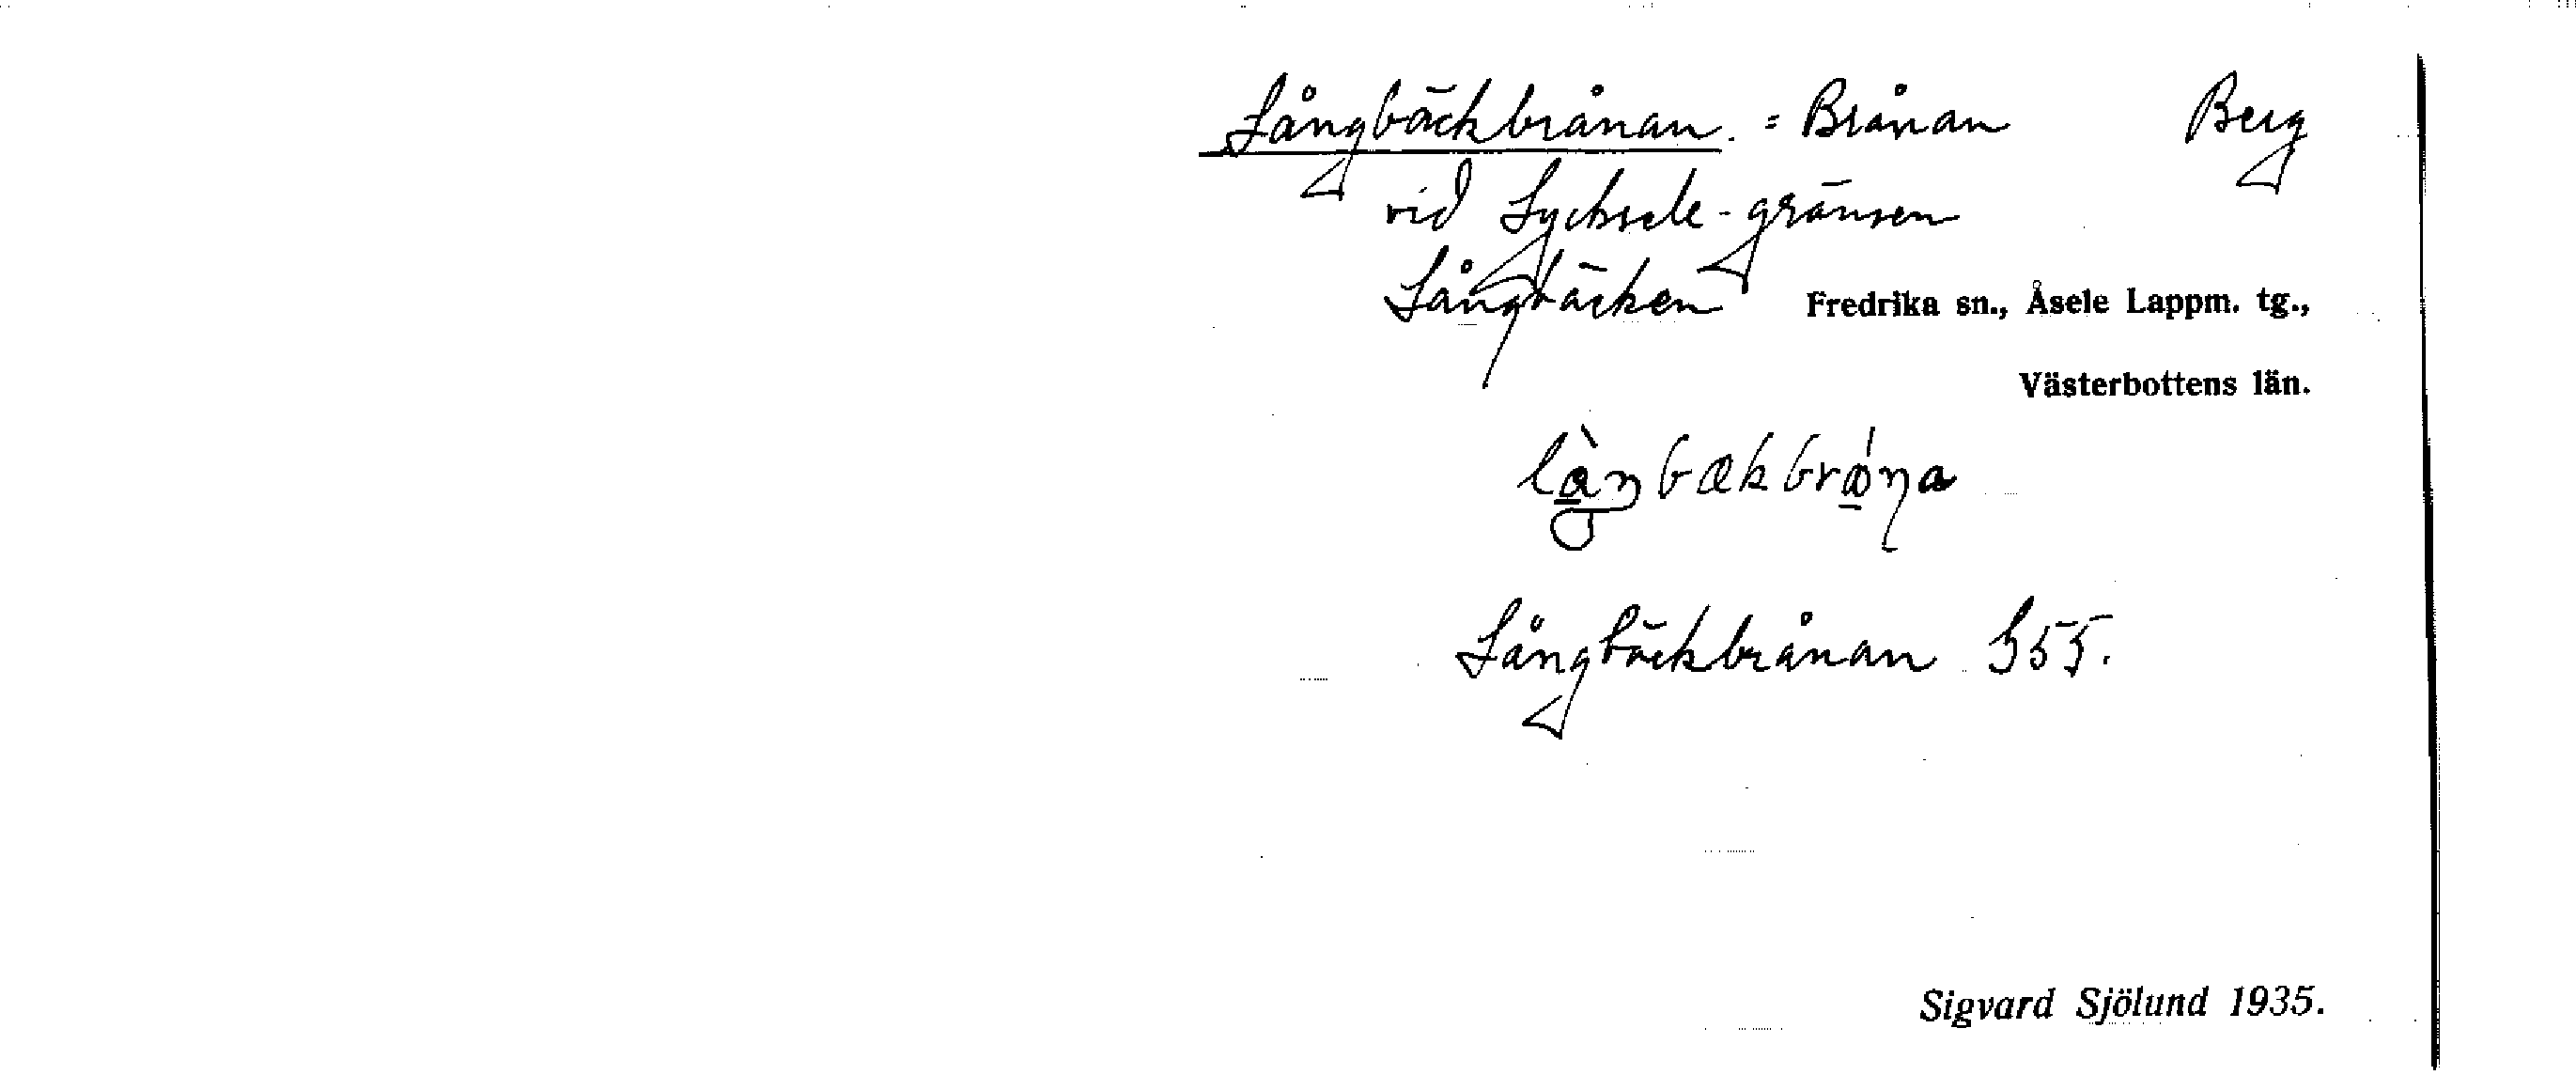 Långbäckbrånan. = Brånan Berg
vid Lycksele-gränsen
Långbäcken Fredrika sn., Åsele Lappm. tg.,
Västerbottens län.
Långbäckbrånan S55.
Sigvard Sjölund 1935.